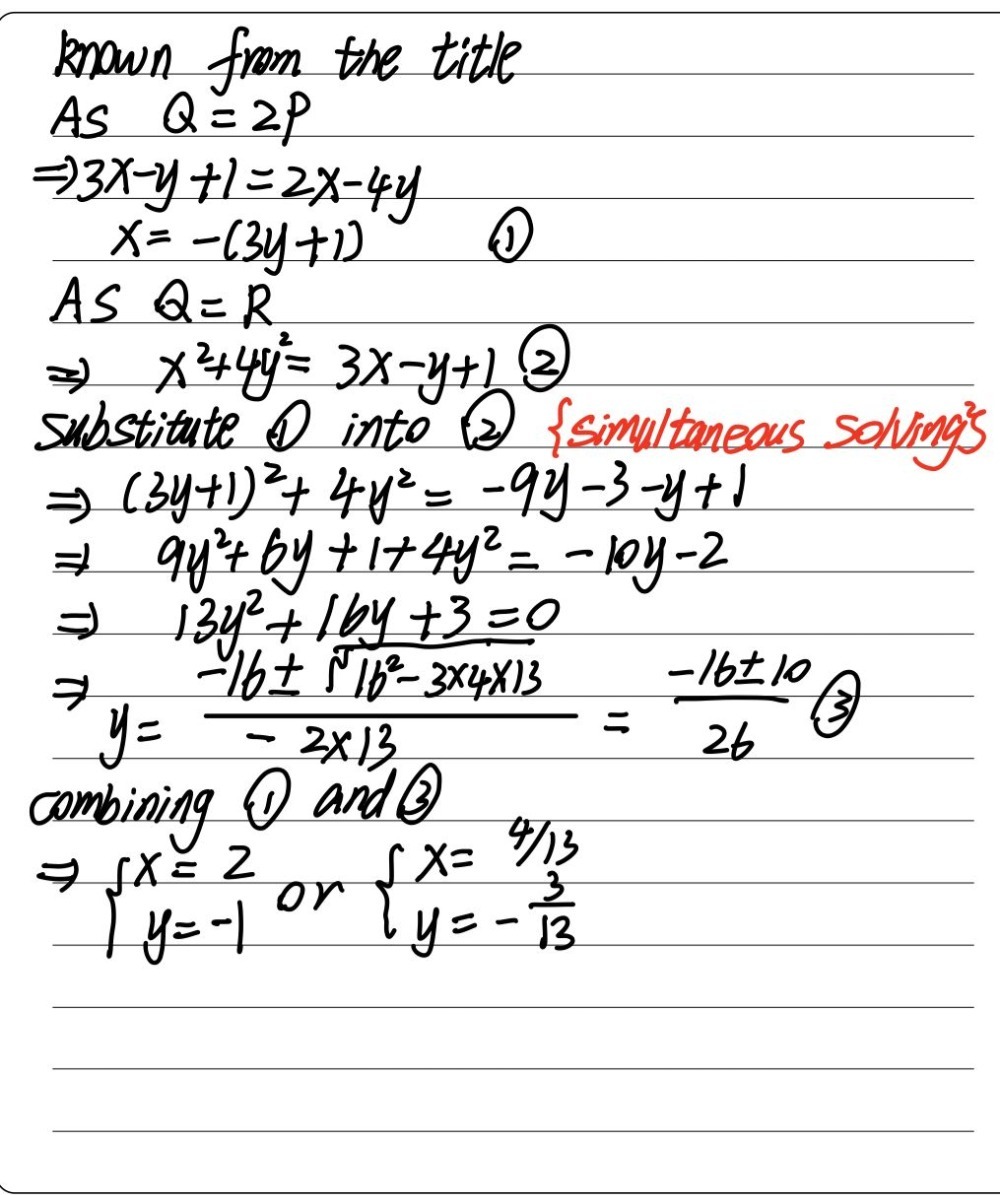 known from the title
As Q = 2P
⇒ 3x-y+1 = 2x-4y
x = -(3y+1) ①
AS Q = R
⇒ x²+4y² = 3x-y+1 ②
substitute ① into ② {simultaneous solving}
⇒ (3y+1)²+ 4y² = -9y-3-y+1
⇒ 9y²+6y+1+4y² = -10y-2
⇒ 13y²+16y+3=0
⇒ y = (-16±√(16²-3×4×13))/(- 2×13) = (-16±10)/26 ③
combining ① and ③
⇒ {x = 2 y = -1 or {x = 4/13 y = -3/13